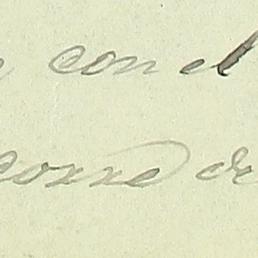 con el
corre de